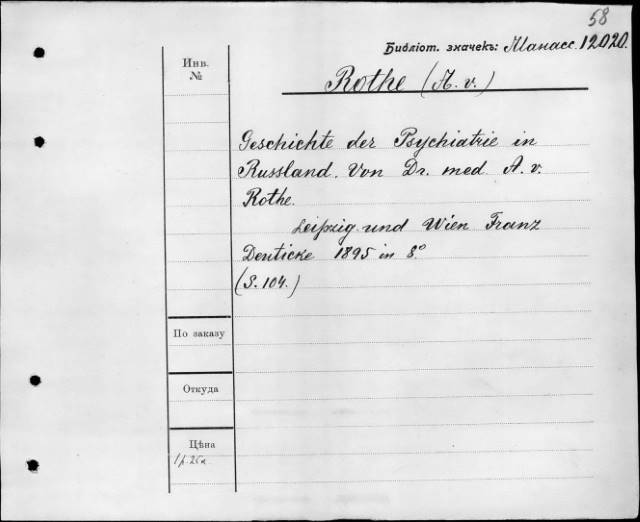 58
Библіот. значекъ: Манасс. 12020.
Инв.
№
Rothe (A. v.)
Geschichte der Psychiatrie in
Russland. Von Dr. med. A. v.
Rothe.
Leipzig und Wien Franz
Deuticke 1895 in 8°
(S. 104.)
По заказу
Откуда
Цѣна
1р. 25к.